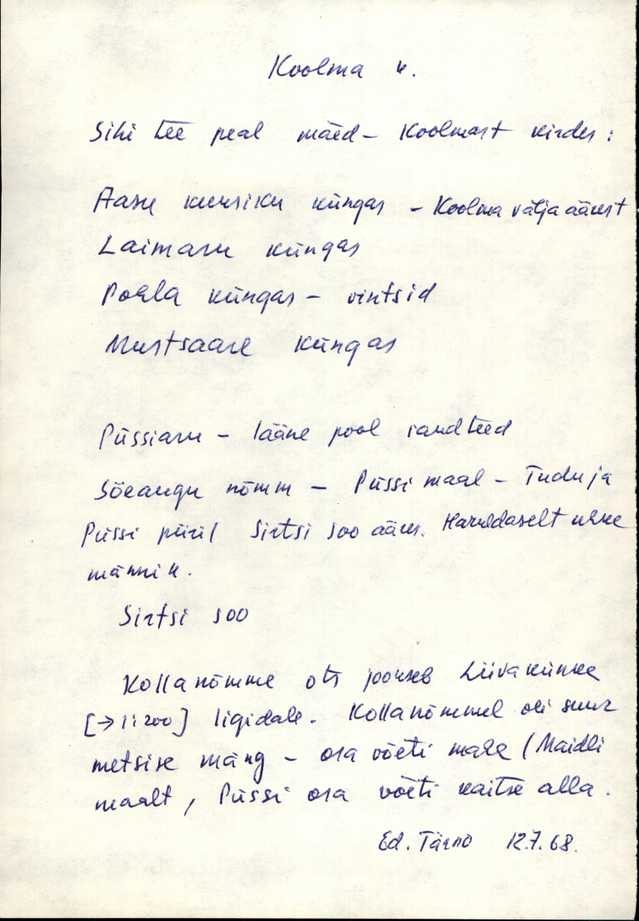 Koolma k.
Sihi tee peal mäed - Koolmast kirdes:
Aasu kuusiku küngas - Koolma välja äärest
Laimaru küngas
Poala küngas - vintsid
Mustsaare küngas
Püssiaru - lääne pool raudteed
Söeaugu nõmm - Püssi maal - Tudu ja
Püssi piiril Sirtsi soo ääres. Haruldaselt ilus
männik.
Sirtsi soo
Kollanõmme ots jookseb Liivakünka
[→1:200] ligidale. Kollanõmmel oli suur
metsise mäng - osa võeti maha (Maidli
maalt, Püssi osa võeti kaitse alla.
Ed. Tärno 12.7.68.